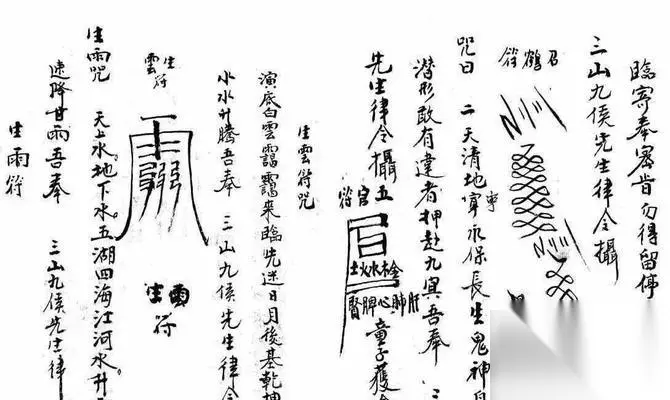 臨壽奉宻旨勿得留停
三山九侯先生律令攝
召鶴符
咒曰 二天清地寧永保長生鬼神自
潜形敢有違者押赴九真吾奉 三
先生律令攝
五官符
金木水火土
肝肺心脾腎
童子獲
生雲符咒
演底白雲靄靄來臨先迷日月後基乾坤
水水升騰吾奉 三山九侯先生律令
生雲符
雲生符
生雨咒 天上水。地下水。五湖四海江河水升
速降甘雨吾奉 三山九侯先生律
生雨符